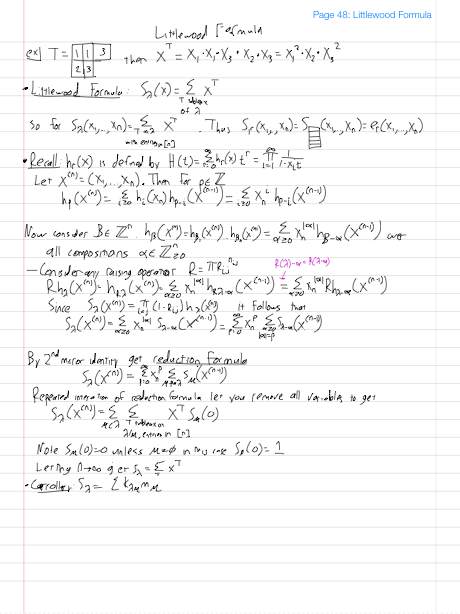 Page 48: Littlewood Formula
Littlewood Formula
ex) T = 1 1 3 / 2 3 Then X^T = X₁·X₁·X₃·X₂·X₃ = X₁²·X₂·X₃²
• Littlewood Formula: S_λ(x) = Σ_{T tableaux of λ} X^T
so for S_λ(x₁,...,x_n) = Σ X^T. Thus S_{1^r}(x₁,...,x_n) = e_r(x₁,...,x_n)
with entries in [n]
• Recall: h_r(x) is defined by H(t) = Σ_{r=0}^∞ h_r(x) t^r = Π_{i=1}^∞ 1/(1-x_i t)
Let X^(n) = (x₁,...,x_n). Then for p∈ℤ
h_p(X^(n)) = Σ_{i≥0} h_i(x_n) h_{p-i}(X^(n-1)) = Σ_{i≥0} x_n^i h_{p-i}(X^(n-1))
Now consider B∈ℤⁿ. h_B(X^(n)) = h_{B₁}(X^(n))...h_{B_n}(X^(n)) = Σ_{α≥0} x_n^{|α|} h_{B-α}(X^(n-1)) over
all compositions α∈ℤⁿ_{≥0}
R(λ)-α = R(λ-α)
– Consider any raising operator R = Π R_{ij}^{n_ij}
R h_λ(X^(n)) = h_{Rλ}(X^(n)) = Σ_{α≥0} x_n^{|α|} h_{Rλ-α}(X^(n-1)) = Σ_{α≥0} x_n^{|α|} R h_{λ-α}(X^(n-1))
Since S_λ(X^(n)) = Π_{i<j} (1-R_{ij}) h_λ(X^(n)) it follows that
S_λ(X^(n)) = Σ_{α≥0} x_n^{|α|} S_{λ-α}(X^(n-1)) = Σ_{p=0}^∞ x_n^p Σ_{α≥0, |α|=p} S_{λ-α}(X^(n-1))
By 2nd mirror identity get reduction formula
S_λ(X^(n)) = Σ_{p=0}^∞ x_n^p Σ S_μ(X^(n-1))
Repeated iteration of reduction formula let you remove all variables to get
S_λ(X^(n)) = Σ_{μ⊂λ} Σ X^T S_μ(0)
T tableaux on
λ/μ, entries in [n]
Note S_μ(0)=0 unless μ=∅ in this case S_μ(0) = 1
Letting n→∞ get S_λ = Σ X^T
• Corrollary S_λ = Σ K_{λμ} m_μ